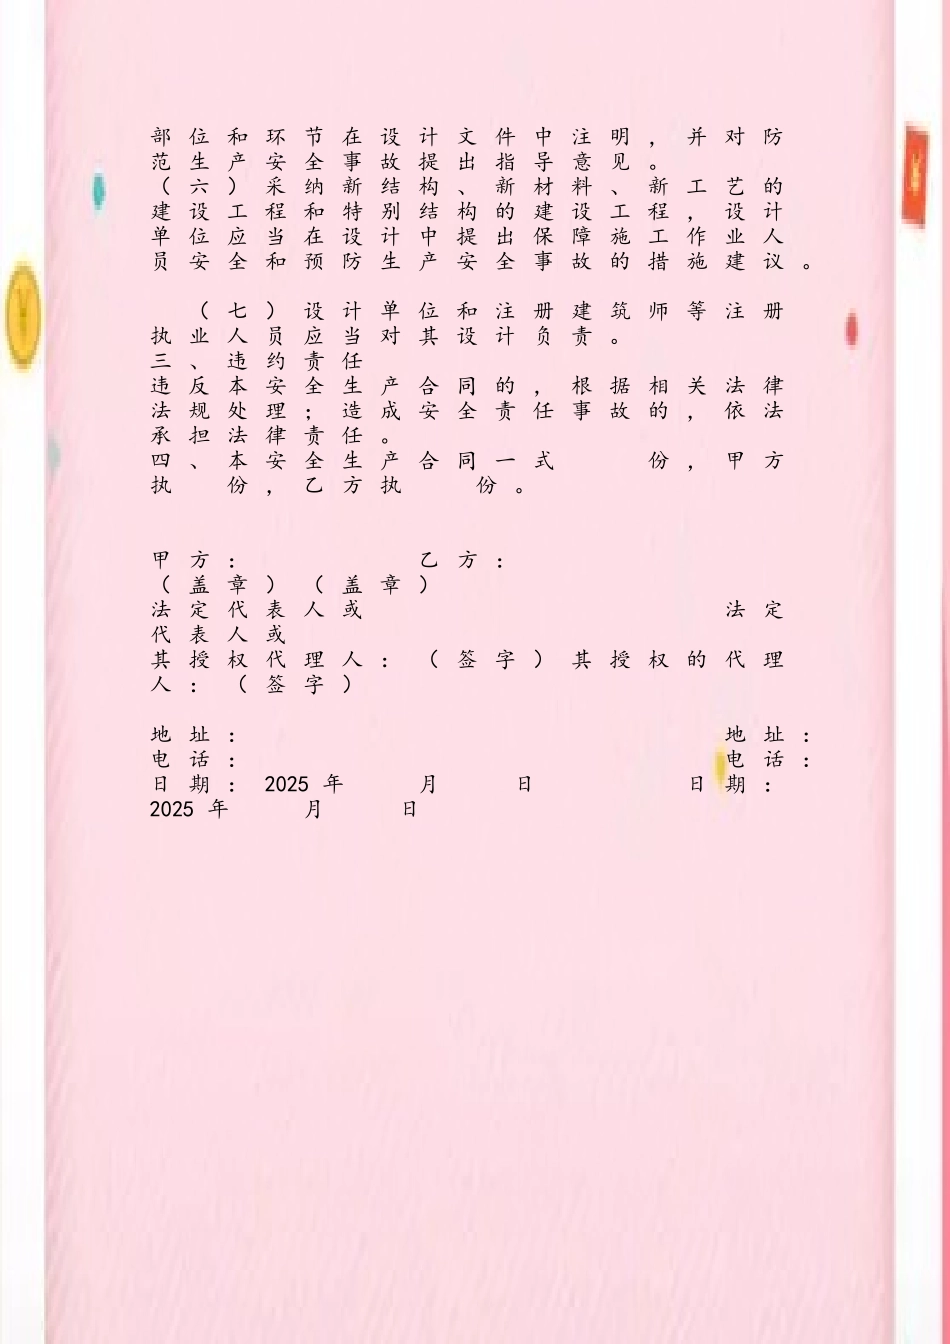 部位和环节在设计文件中注明，并对防
范生产安全事故提出指导意见。
（六）采纳新结构、新材料、新工艺的
建设工程和特别结构的建设工程，设计
单位应当在设计中提出保障施工作业人
员安全和预防生产安全事故的措施建议。
（七）设计单位和注册建筑师等注册
执业人员应当对其设计负责。
三、违约责任
违反本安全生产合同的，根据相关法律
法规处理；造成安全责任事故的，依法
承担法律责任。
四、本安全生产合同一式 份，甲方
执 份，乙方执 份。
甲方： 乙方：
（盖章）（盖章）
法定代表人或 法定
代表人或
其授权代理人：（签字）其授权的代理
人：（签字）
地址： 地址：
电话： 电话：
日期：2025年 月 日 日期：
2025年 月 日